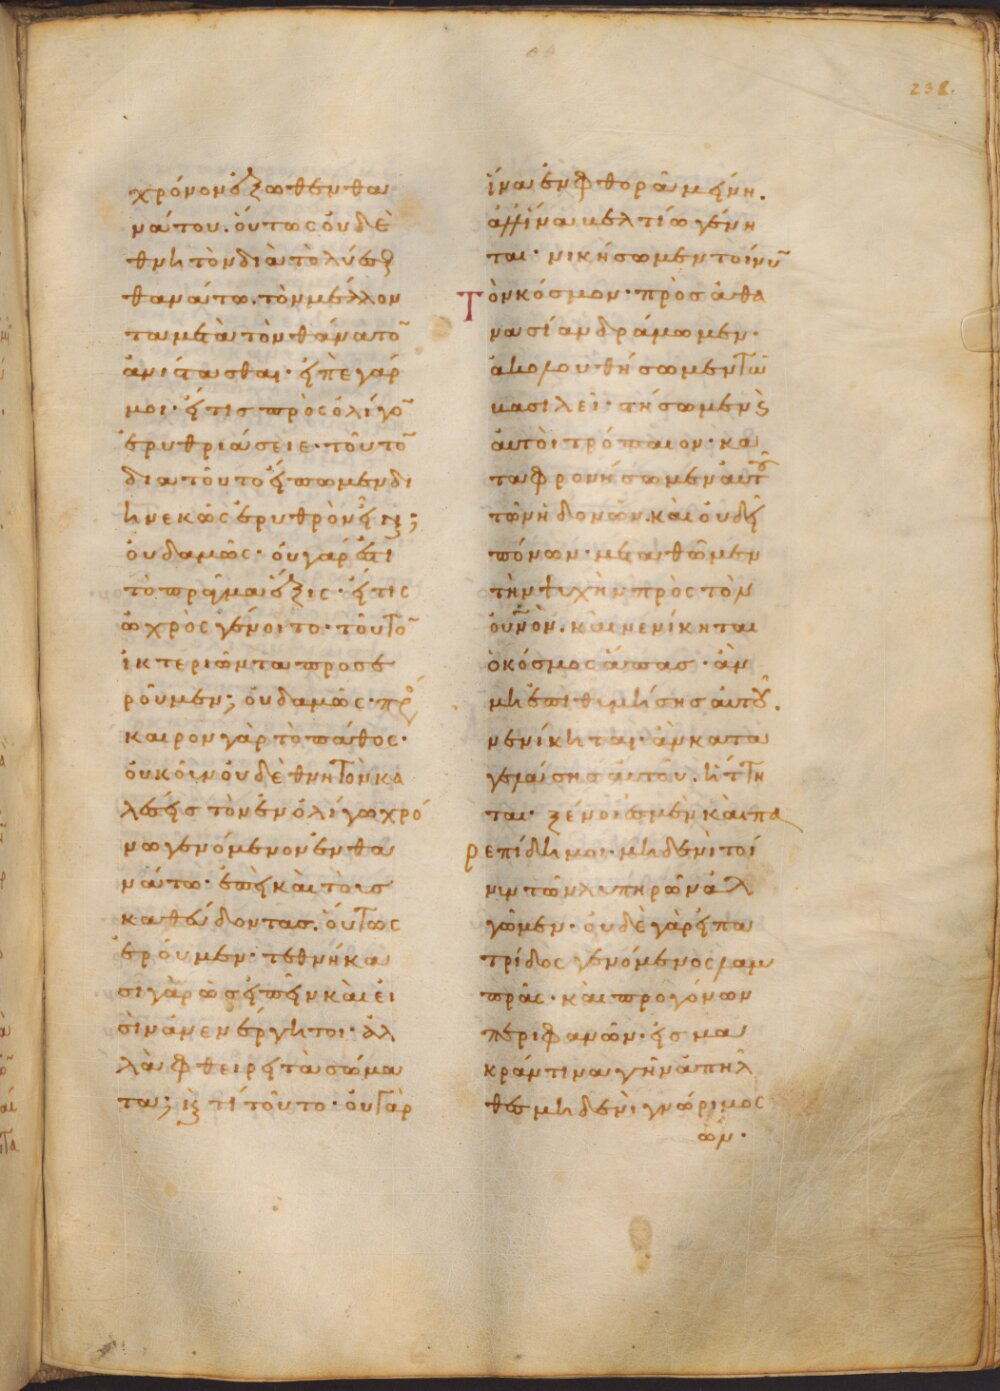 238.
χρόνον ἔξωθεν θα
νάτου. οὕτως οὐδὲ
θνητὸν διὰ τὸ λῦσαι
θανάτω. τὸν μέλλον
τα μετὰ τὸν θάνατο̅
ἀνίστασθαι· εἰπὲ γάρ
μοι· εἴ τις πρὸς ὀλίγο̅
ἐρυθριάσειε· τοῦτο̅
διατοῦτο εἴπωμεν δι
ηνεκῶς ἐρυθρὸν εἶναι;
οὐδαμῶς· οὐ γάρ ἐστι
τὸ πρᾶγμα ἕξις· εἴ τις
ὠχρὸς γένοιτο· τοῦτο̅
ἰκτεριῶντα προσε
ροῦμεν; οὐδαμῶς· πρό
καιρον γὰρ τὸ πάθος·
οὐκοῖν οὐδὲ θνητὸν κα
λέσεις τὸν ἐν ὀλίγω χρό
νω γενόμενον ἐν θα
νάτω· ἐπεὶ καὶ τοὺς
καθεύδοντας. οὕτως
ἐροῦμεν· τεθνήκα
σι γὰρ ὡς εἰπεῖν καὶ εἰ
σὶν ἀνενέργητοι· ἀλ
λὰ φθείρει τὰ σώμα
τα; καὶ τί τοῦτο· οὐ γὰρ
ἵνα ἐν φθορᾶ μείνη.
ἀλλ' ἵνα βελτίω γένη
ται· νικήσωμεν τοίνυ̅
Τὸν κόσμον· πρὸς ἀθα
νασίαν δράμωμεν·
ἀκολουθήσωμεν τῶ
βασιλεῖ· στήσωμεν καὶ
αὐτοὶ τρόπαιον· κα
ταφρονήσωμεν αὐτοῦ
τῶν ἡδονῶν. καὶ οὐ δεῖ
πόνων· μεταθῶμεν
τὴν ψυχὴν πρὸς τὸν
οὐνὸν. καὶ νενίκηται
ὁ κόσμος ἅπας· ἂν
μὴ ἐπιθυμήσης αὐτοῦ.
νενίκηται· ἂν κατα
γελάσης αὐτοῦ. ἥττη
ται· ξένοι ἐσμὲν καὶ πα
ρεπίδημοι· μηδενὶ τοί
νυν τῶν λυπηρῶν ἀλ
γῶμεν· οὐδὲ γὰρ εἰ πα
τρίδος γενόμενος λαμ
πρᾶς· καὶ προγόνων
περιφανῶν· εἰς μα
κράν τινα γῆν ἀπῆλ
θες μηδενὶ γνώριμος
ὤν·